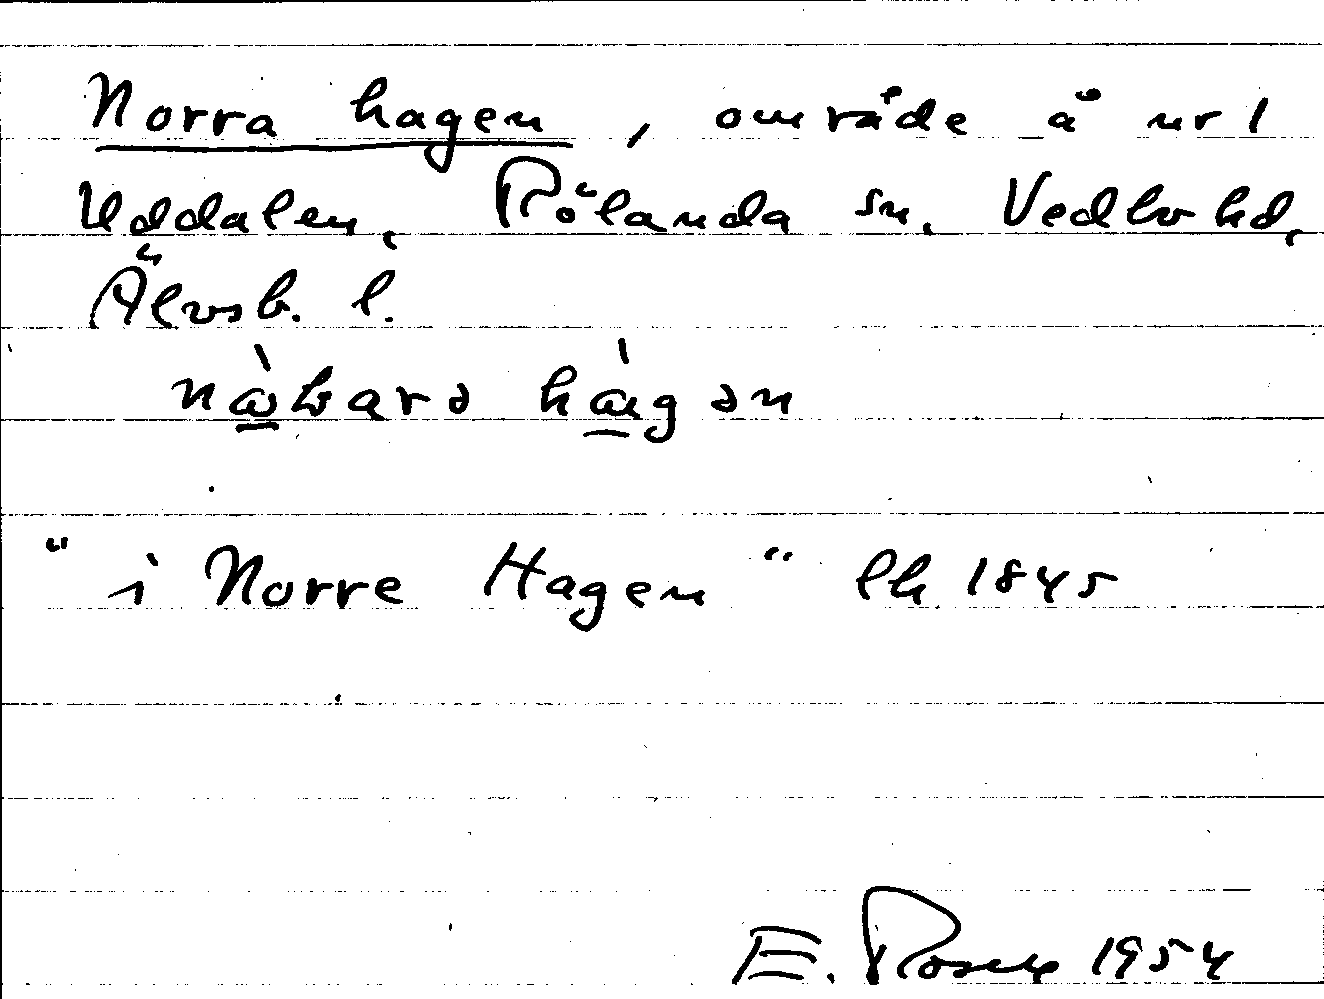 Norra hagen, område å nr 1
Uddalen, Rölanda sn. Vedbo hd,
Älvsb. l.
hàgən
"i Norre Hagen" lh 1845
E. 1954